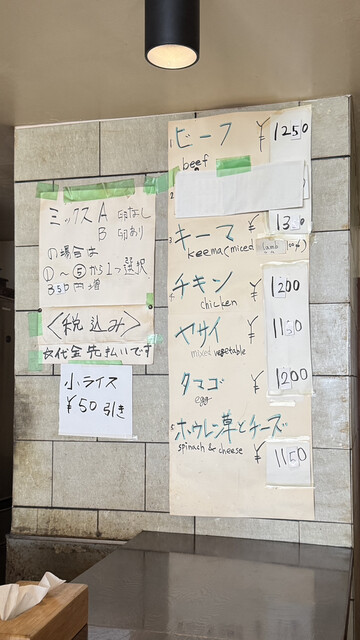 ミックス A 卵なし
B 卵あり
の場合は
①〜⑤から1つ選択
350円増
〈税込み〉
お代金先払いです
小ライス
¥50引き
1 ビーフ ¥1250
beef
2
3 キーマ ¥
keema (miced lamb
4 チキン ¥1200
chicken
ヤサイ ¥1150
mixed vegetable
タマゴ ¥1200
egg
5 ホウレン草とチーズ
spinach & cheese ¥1150